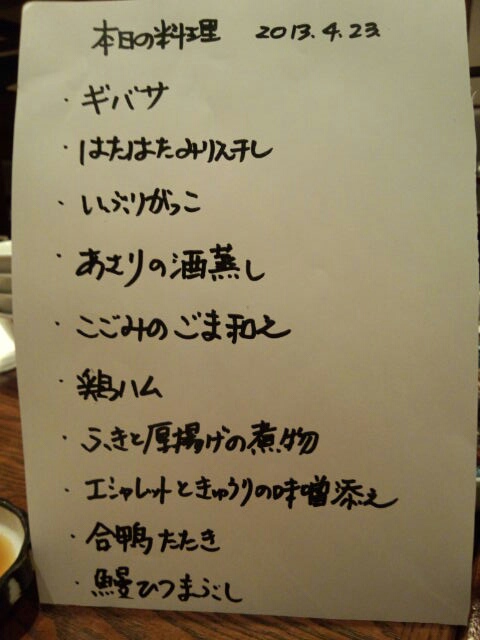 本日の料理 2013.4.23
・ギバサ
・はたはたみりん干し
・いぶりがっこ
・あさりの酒蒸し
・こごみのごま和え
・鶏ハム
・ふきと厚揚げの煮物
・エシャレットときゅうりの味噌添え
・合鴨たたき
・鰻ひつまぶし